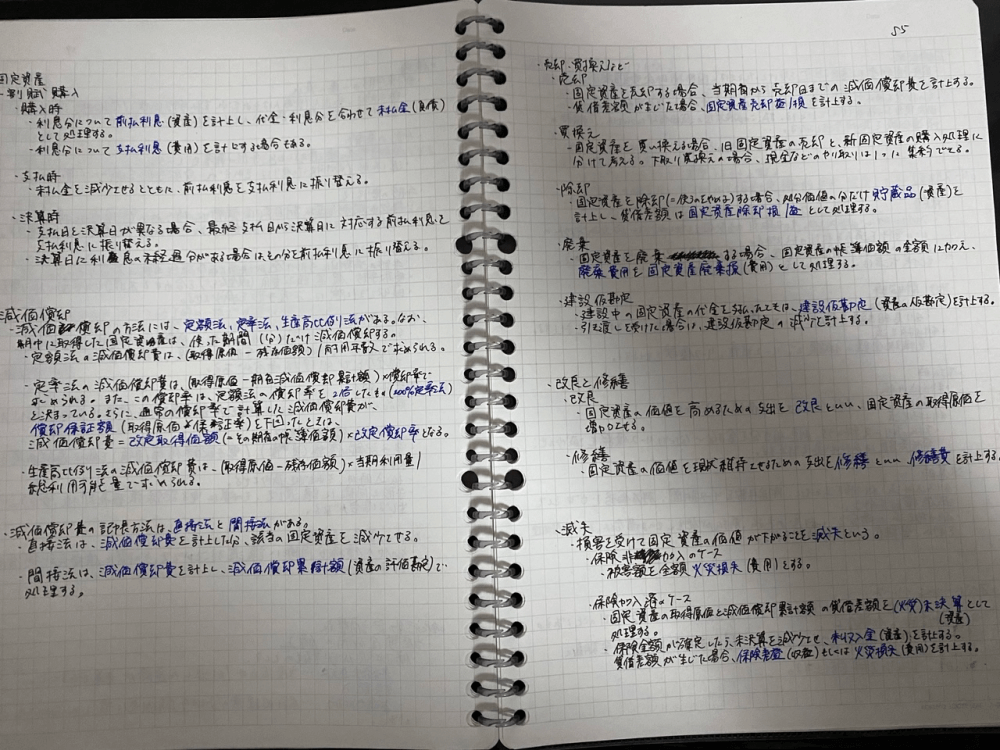 固定資産
・割賦購入
・購入時
・利息分について前払利息(資産)を計上し、代金・利息分を合わせて未払金(負債)
として処理する。
・利息分について支払利息(費用)を計上する場合もある。
・支払時
・未払金を減少させるとともに、前払利息を支払利息に振り替える。
・決算時
・支払日と決算日が異なる場合、最終支払日から決算日に対応する前払利息を
支払利息に振り替える。
・決算日に利息の未経過分がある場合はその分を前払利息に振り替える。
減価償却
・減価償却の方法には、定額法、定率法、生産高比例法がある。なお、
期中に取得した固定資産は、使った期間(分)だけ減価償却する。
・定額法の減価償却費は、(取得原価-残存価額)/耐用年数で求められる。
・定率法の減価償却費は、(取得原価-期首減価償却累計額)×償却率で
求められる。また、この償却率は、定額法の償却率を2倍したもの(200%定率法)
と決まっている。さらに、通常の償却率で計算した減価償却費が、
償却保証額(取得原価×保証率)を下回ったときは、
減価償却費=改定取得価額(=その期首の帳簿価額)×改定償却率となる。
・生産高比例法の減価償却費は、(取得原価-残存価額)×当期利用量/
総利用可能量で求められる。
・減価償却費の記帳方法は、直接法と間接法がある。
・直接法は、減価償却費を計上しながら、該当の固定資産を減少させる。
・間接法は、減価償却費を計上し、減価償却累計額(資産の評価勘定)で
処理する。
55
・売却・買換えなど
・売却
・固定資産を売却する場合、当期首から売却日までの減価償却費を計上する。
・貸借差額が生じた場合、固定資産売却益/損を計上する。
・買換え
・固定資産を買い換える場合、旧固定資産の売却と、新固定資産の購入処理に
分けて考える。下取り買換えの場合、現金などのやり取りは1つに集約できる。
・除却
・固定資産を除却(=使うのをやめる)する場合、処分価値の分だけ貯蔵品(資産)を
計上し、貸借差額は固定資産除却損/益として処理する。
・廃棄
・固定資産を廃棄する場合、固定資産の帳簿価額の全額に加え、
廃棄費用を固定資産廃棄損(費用)として処理する。
・建設仮勘定
・建設中の固定資産の代金を支払ったときは、建設仮勘定(資産の仮勘定)を計上する。
・引き渡しを受けた場合は、建設仮勘定の減少を計上する。
・改良と修繕
・改良
・固定資産の価値を高めるための支出を改良といい、固定資産の取得原価を
増加させる。
・修繕
・固定資産の価値を現状維持させるための支出を修繕といい、修繕費を計上する。
・滅失
・損害を受けて固定資産の価値が下がることを滅失という。
・保険非加入のケース
・被害額を全額火災損失(費用)とする。
・保険加入済のケース
・固定資産の取得原価と減価償却累計額の貸借差額を(火災)未決算として
(資産)
処理する。
・保険金額が確定したら、未決算を減少させ、未収入金(資産)を計上する。
貸借差額が生じた場合、保険差益(収益)もしくは火災損失(費用)を計上する。